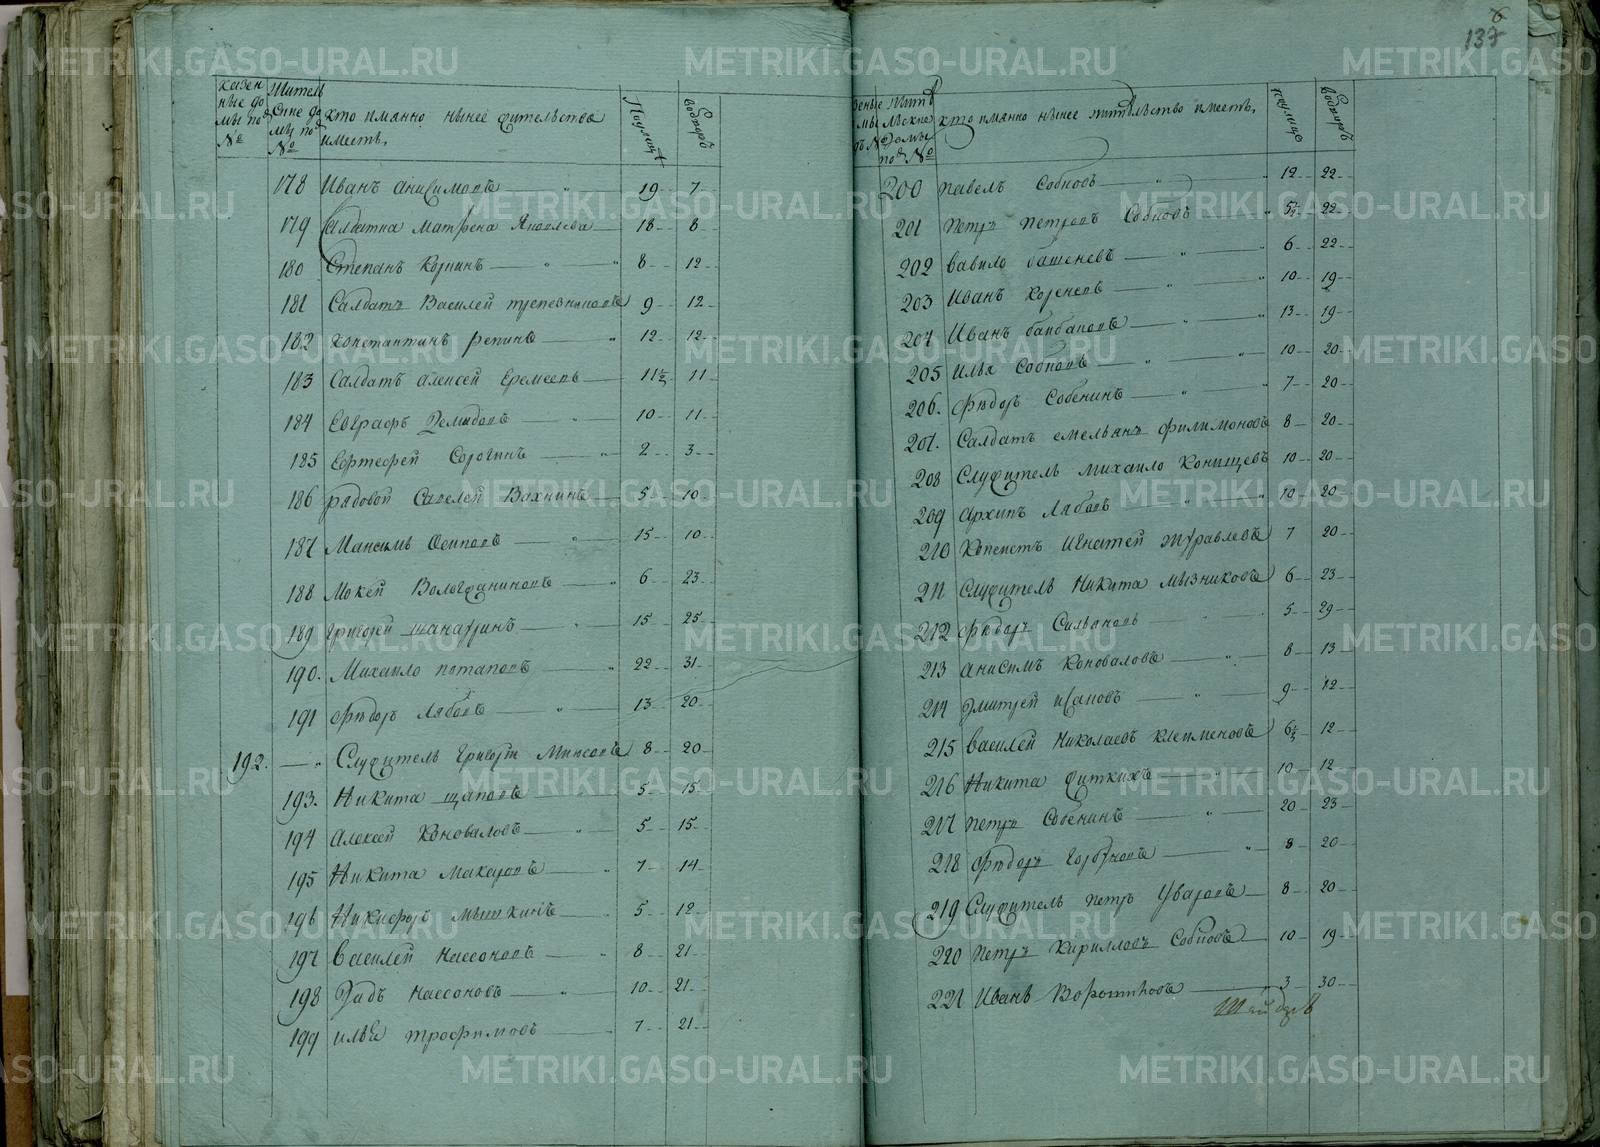 137
6
казен
ные до
мы под
№
Жител
ские до
мы под
№
кто имянно ныне жительство
имеетъ,
Поулицѣ
Водворъ
178 Иванъ Анисимовъ — „ — 19 — 7 —
179 Салдатка Матрена Яковлева — 18 — 8
180 Степанъ Корнинъ — „ — „ 8 — 12 —
181 Салдатъ Василей трапезниковъ 9 — 12 —
182 Константинъ репинъ — „ 12 — 12 —
183 Салдатъ алексей Еремеевъ — 11½ 11 —
184 Евграфъ Демидовъ — „ — 10 — 11 —
185 Ефтефей Сорогинъ — „ — 2 — 3 —
186 рядовой Савелей Вахнинъ — 5 — 10 —
187 Максимъ Осиповъ — „ — 15 — 10 —
188 Мокей Вологжаниновъ — „ 6 — 23 —
189 Григорей шанаринъ — „ 15 — 25 —
190. Михаило потаповъ — „ 22 — 31 —
191 Фѣдоръ Лябовъ — „ — 13 — 20 —
192. — „ Служитель Григорей Минеевъ 8 — 20 —
193. Никита щаповъ — „ 5 — 15 —
194 Алексей Коноваловъ — „ — 5 — 15 —
195 Никита Макаровъ — „ 7 — 14 —
196 Никифоръ мышкинъ — „ 5 — 12 —
197 Василей Нассоновъ — „ 8 — 21 —
198 Гадъ Нассоновъ — „ — 10 — 21 —
199 илья трофимовъ — 7 — 21 —
кто имянно ныне жительство имеетъ,
поулице
Водворъ
200 павелъ Собновъ — „ — „ 12 — 22 —
201 Петръ Петровъ Собновъ — „ 5½ 22 —
202 вавило башеневъ — „ — „ 6 — 22 —
203 Иванъ Корѣневъ — „ — „ 10 — 19 —
204 Иванъ банбаковъ — „ — „ 13 — 19 —
205 илья Собновъ — „ — „ 10 — 20 —
206. Фѣдоръ Собенинъ — „ — „ 7 — 20 —
207. Салдатъ емельянъ филимоновъ 8 — 20 —
208 Служитель михаило Конищевъ 10 — 20 —
209 Архипъ Лябовъ — „ — „ 10 — 20
210 Копеистъ Игнатей журавлевъ 7 20 —
211 Служитель Никита мызниковъ 6 — 23 —
212 Фѣдоръ Сильновъ — „ — „ 5 — 29 —
213 анисимъ Коноваловъ — „ — 8 — 13
214 Дмитрей ивановъ — „ — 9 — 12 —
215 Василей Николаевъ клеименовъ 6½ 12 —
216 Никита житкихъ — „ — 10 — 12 —
217 петръ Собенинъ — „ — 20 — 23 —
218 Фѣдоръ Горбуновъ — „ 8 — 20 —
219 Служитель петръ Уваровъ — 8 — 20 —
220 Петръ Кирилловъ Собновъ — 10 — 19 —
221 Иванъ Воротниковъ — „ 3 — 30 —